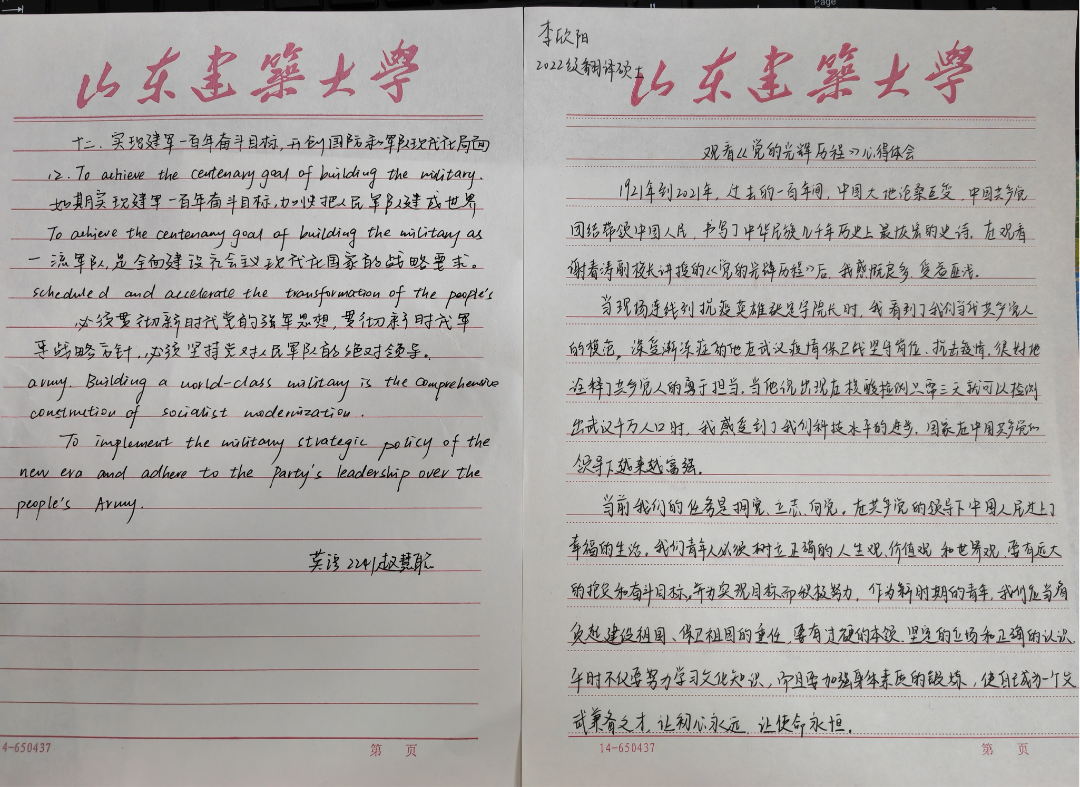 山东建筑大學
十二、实现建军一百年奋斗目标,开创国防和军队现代化局面
12. To achieve the centenary goal of building the military.
如期实现建军一百年奋斗目标,加快把人民军队建成世界
To achieve the centenary goal of building the military as
一流军队,是全面建设社会主义现代化国家的战略要求。
scheduled and accelerate the transformation of the people's
必须贯彻新时代党的强军思想,贯彻新时代军
事战略方针,必须坚持党对人民军队的绝对领导。
army. Building a world-class military is the comprehensive
construction of socialist modernization.
To implement the military strategic policy of the
new era and adhere to the Party's leadership over the
people's Army.
英语2241赵慧
4-650437
第 页
李欣阳
2022级翻译硕士
山东建筑大學
观看《党的光辉历程》心得体会
1921年到2021年,过去的一百年间,中国大地沧桑巨变,中国共产党
团结带领中国人民,书写了中华民族几千年历史上最恢宏的史诗。在观看
谢春涛副校长讲授的《党的光辉历程》后,我感慨良多,受益匪浅。
当现场连线到抗疫英雄张定宇院长时,我看到了我们当代共产党人
的模范。深受渐冻症的他在武汉疫情保卫战坚守岗位,抗击疫情,很好地
诠释了共产党人的勇于担当。当他说出现在核酸检测只需三天就可以检测
出武汉千万人口时,我感受到了我们科技水平的进步,国家在中国共产党的
领导下越来越富强。
当前我们的任务是拥党、立志、向党。在共产党的领导下中国人民过上了
幸福的生活。我们青年人必须树立正确的人生观、价值观和世界观,要有远大
的抱负和奋斗目标,并为实现目标而积极努力,作为新时期的青年,我们应当肩
负起建设祖国、保卫祖国的重任,要有过硬的本领,坚定的立场和正确的认识,
平时不仅要努力学习文化知识,而且要加强身体素质的锻炼,使自己成为一个文
武兼备之才,让初心永远,让使命永恒。
14-650437
第 页